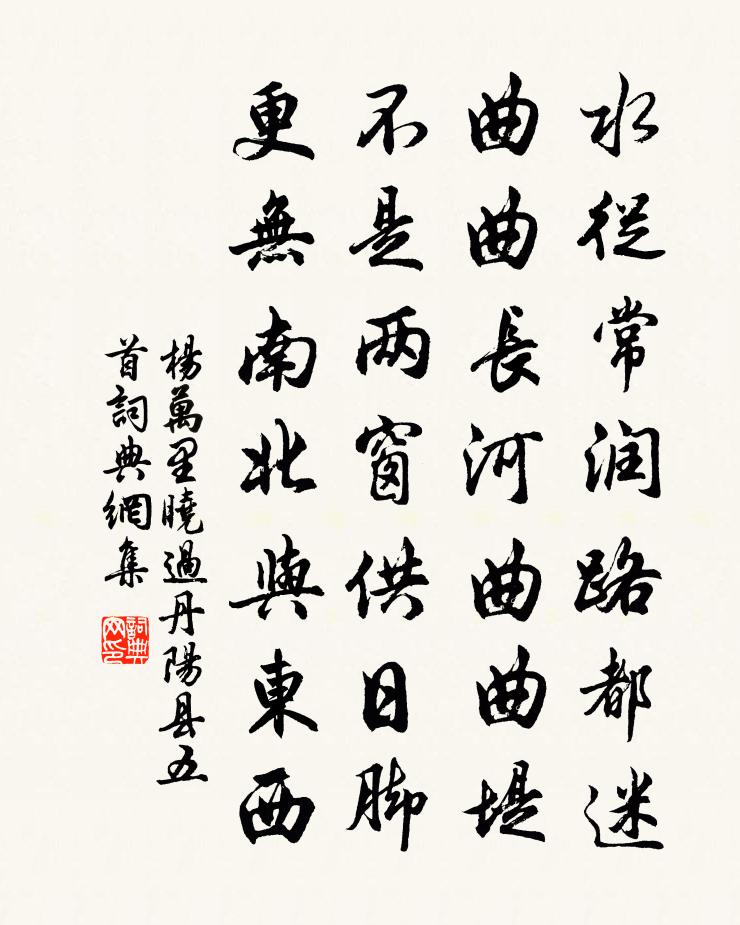 水從常润路都迷
曲曲長河曲曲堤
不是两窗供日脚
更無南北與東西
楊萬里曉過丹陽县五
首詞典網集
詞典网印